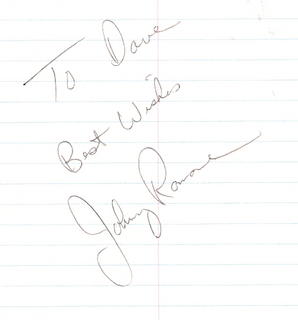 To Dave
Best Wishes
Johnny Ramone